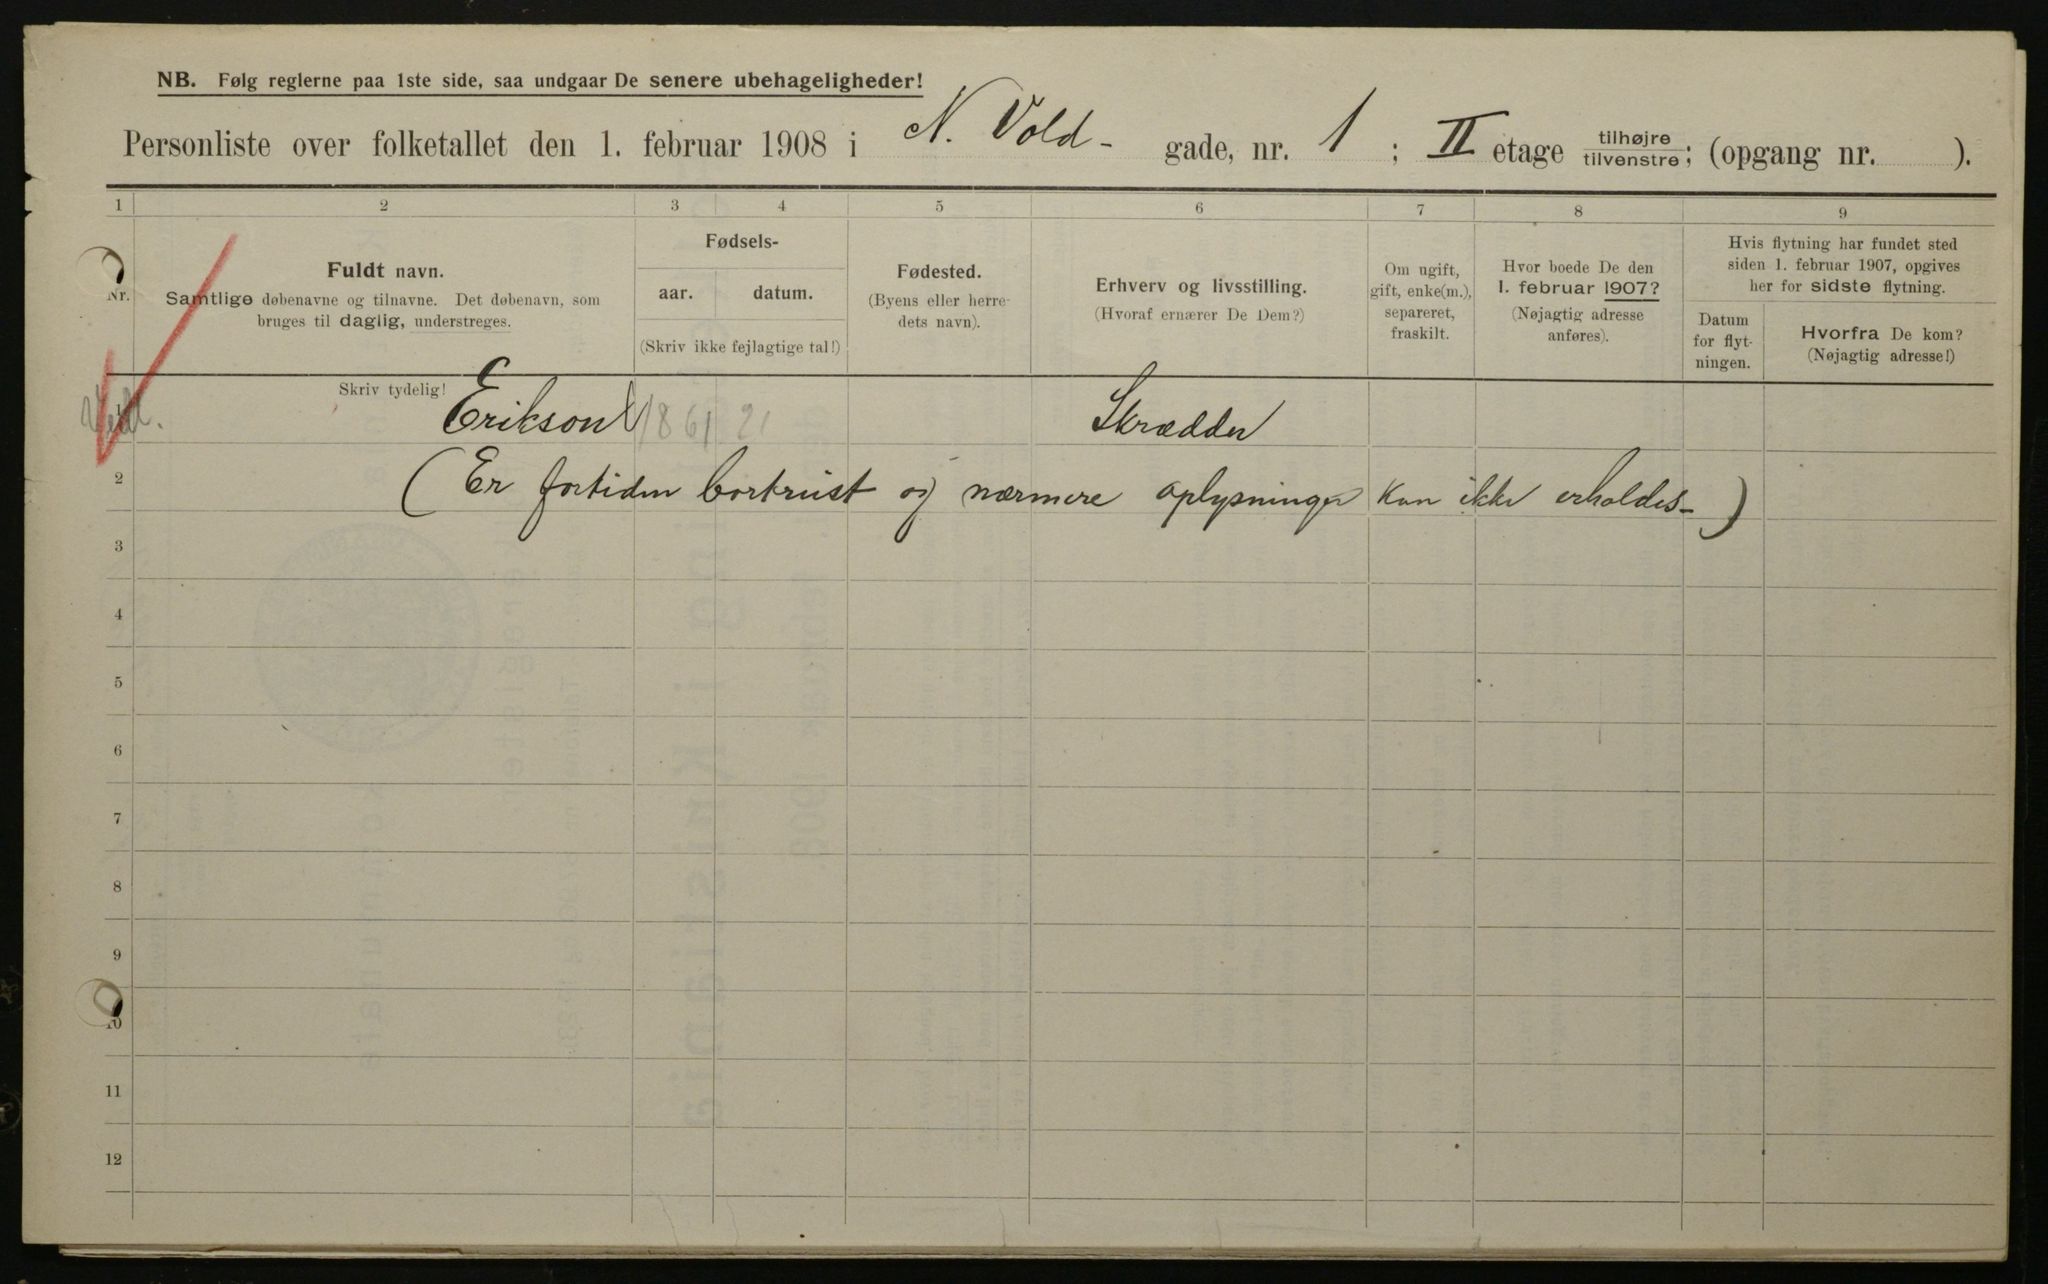 NB. Følg reglerne paa 1ste side, saa undgaar De senere ubehageligheder!
Personliste over folketallet den 1. februar 1908 i N. Vold- gade, nr. 1 ; II etage tilhøjre/tilvenstre; (opgang nr. ).
1 2 3 4 5 6 7 8 9
Nr.
Fuldt navn.
Samtlige døbenavne og tilnavne. Det døbenavn, som
bruges til daglig, understreges.
Fødsels-
aar. datum.
(Skriv ikke fejlagtige tal!)
Fødested.
(Byens eller herre-
dets navn).
Erhverv og livsstilling.
(Hvoraf ernærer De Dem?)
Om ugift,
gift, enke(m.),
separeret,
fraskilt.
Hvor boede De den
1. februar 1907?
(Nøjagtig adresse
anføres).
Hvis flytning har fundet sted
siden 1. februar 1907, opgives
her for sidste flytning.
Datum
for flyt-
ningen.
Hvorfra De kom?
(Nøjagtig adresse!)
Skriv tydelig!
1 Erikson 1861 Skrædder
2 (Er fortiden bortreist og nærmere oplysninger kan ikke erholdes-)
3
4
5
6
7
8
9
10
11
12